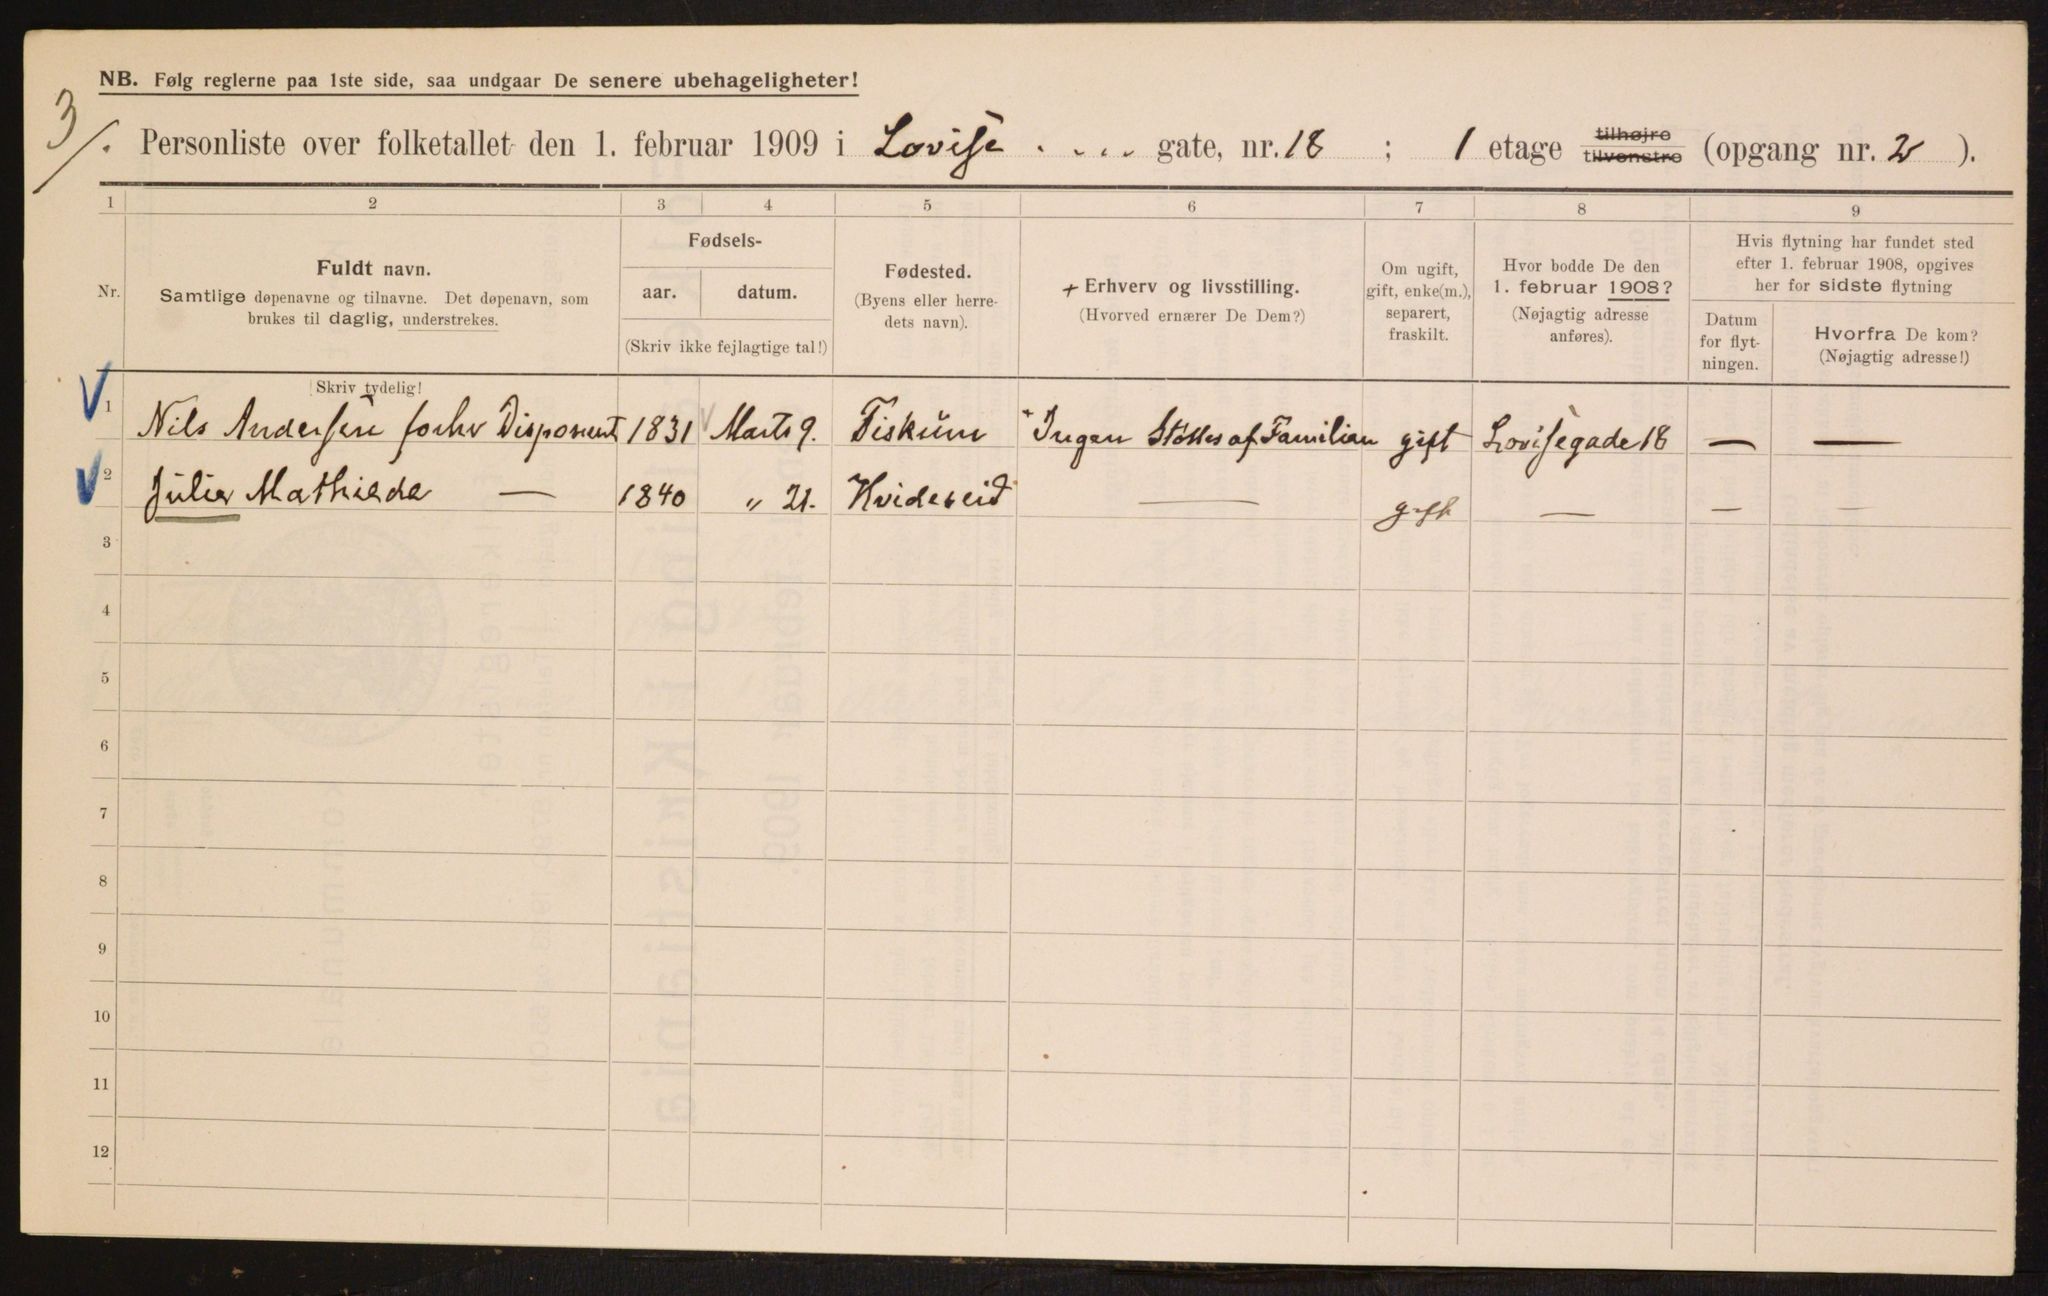 NB. Følg reglerne paa 1ste side, saa undgaar De senere ubehageligheter!
3/.
Personliste over folketallet den 1. februar 1909 i Lovise . . . . gate, nr. 18 ; 1 etage tilhøjre tilvenstre (opgang nr. 2 ).
1 2 3 4 5 6 7 8 9
Nr.
Fuldt navn.
Samtlige døpenavne og tilnavne. Det døpenavn, som
brukes til daglig, understrekes.
Skriv tydelig!
Fødsels-
aar. datum.
(Skriv ikke fejlagtige tal!)
Fødested.
(Byens eller herre-
dets navn).
+ Erhverv og livsstilling.
(Hvorved ernærer De Dem?)
Om ugift,
gift, enke(m.),
separert,
fraskilt.
Hvor bodde De den
1. februar 1908?
(Nøjagtig adresse
anføres).
Hvis flytning har fundet sted
efter 1. februar 1908, opgives
her for sidste flytning
Datum
for flyt-
ningen.
Hvorfra De kom?
(Nøjagtig adresse!)
1 Nils Andersen forhv Disponent 1831 Marts 9. Fiskum + Ingen Støttes af Familien gift Lovisegade 18 — —
2 Julie Mathilde — 1840 " 21. Hvideseid — gift — — —
3
4
5
6
7
8
9
10
11
12